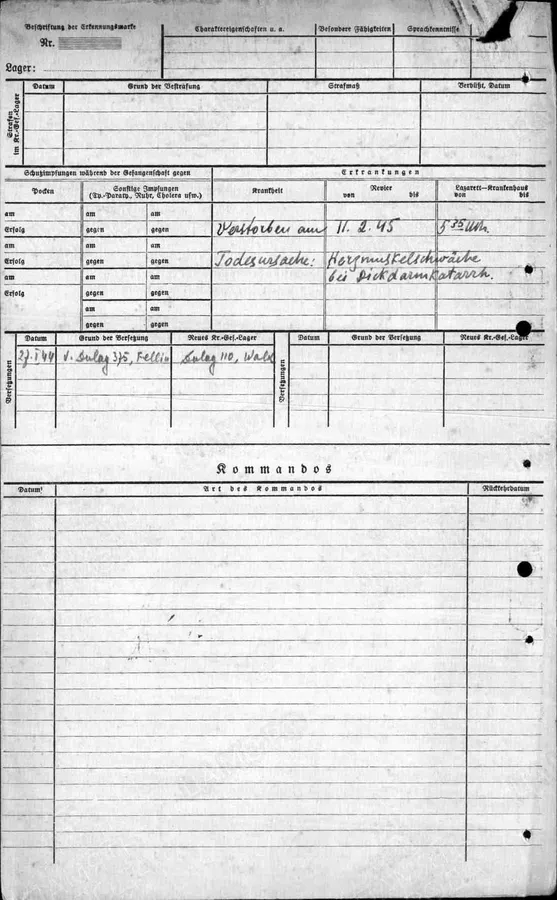 Beschriftung der Erkennungsmarke
Nr.
Lager:
Charaktereigenschaften u. a.
Besondere Fähigkeiten
Sprachkenntnisse
Strafen im Kr.-Gef.-Lager
Datum
Grund der Bestrafung
Strafmaß
Verbüßt, Datum
Schutzimpfungen während der Gefangenschaft gegen
Erkrankungen
Pocken
Sonstige Impfungen
(Ty.-Paraty., Ruhr, Cholera usw.)
Krankheit
Revier
von bis
Lazarett-Krankenhaus
von bis
am am am
Erfolg gegen gegen Verstorben am 11.2.45 5 35 Uhr.
am am am Todesursache: Herzmuskelschwäche
Erfolg gegen gegen
am am am bei Dickdarmkatarrh.
Erfolg gegen gegen
am am
gegen gegen
Versetzungen
Datum Grund der Versetzung Neues Kr.-Gef.-Lager
27.I.44 v. Dulag 375, Fellin Dulag 110, Walk
Versetzungen
Datum Grund der Versetzung Neues Kr.-Gef.-Lager
Kommandos
Datum Art des Kommandos Rückkehrdatum